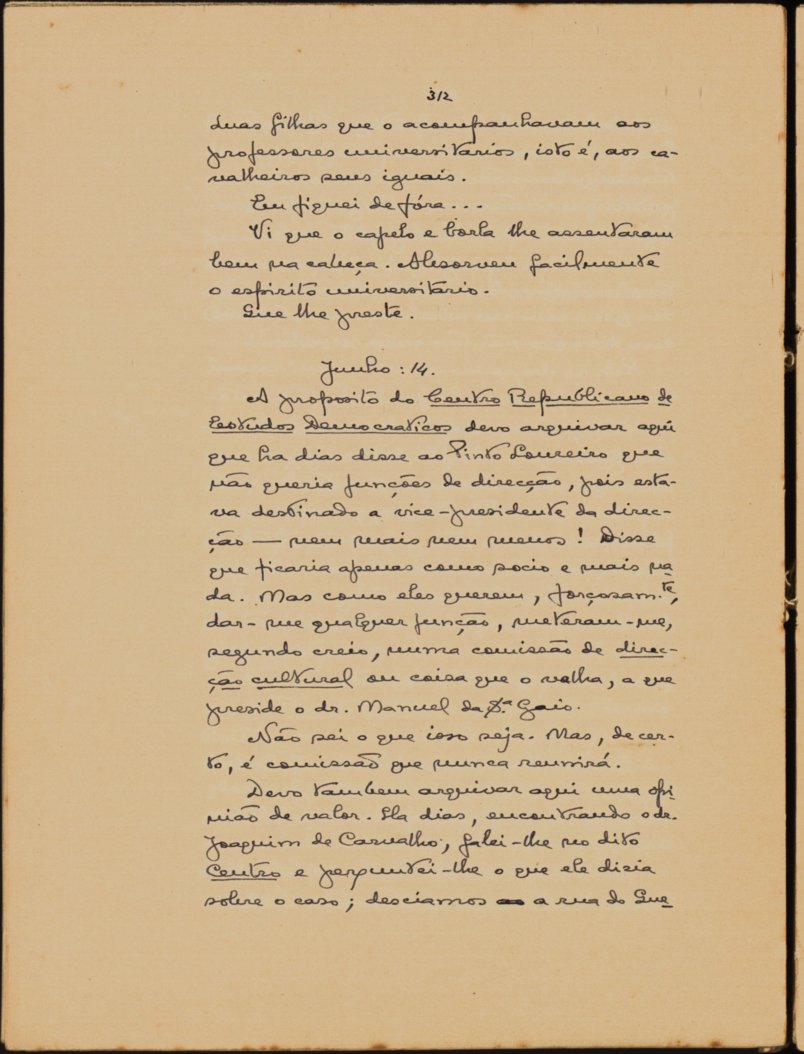 312
duas filhas que o acompanhavam aos
professores universitarios, isto é, aos ca-
valheiros seus iguais.
Eu fiquei de fóra...
Vi que o capelo e borla lhe assentaram
bem na cabeça. Absorveu facilmente
o espirito universitario.
Que lhe preste.
Junho: 14.
A proposito do Centro Republicano de
Estudos Democraticos devo arquivar aqui
que ha dias disse ao Pinto Loureiro que
não queria funções de direcção, pois esta-
va destinado a vice-presidente da direc-
ção — nem mais nem menos! Disse
que ficaria apenas como socio e mais na
da. Mas como eles querem, forçosam.te,
dar-me qualquer função, meteram-me,
segundo creio, numa comissão de direc-
ção cultural ou coisa que o valha, a que
preside o dr. Manuel da S.ª Gaio.
Não sei o que isso seja. Mas, decer-
to, é comissão que nunca reunirá.
Devo tambem arquivar aqui uma opi
nião de valor. Ha dias, encontrando o dr.
Joaquim de Carvalho, falei-lhe no dito
Centro e perguntei-lhe o que ele dizia
sobre o caso; desciamos a rua do Que